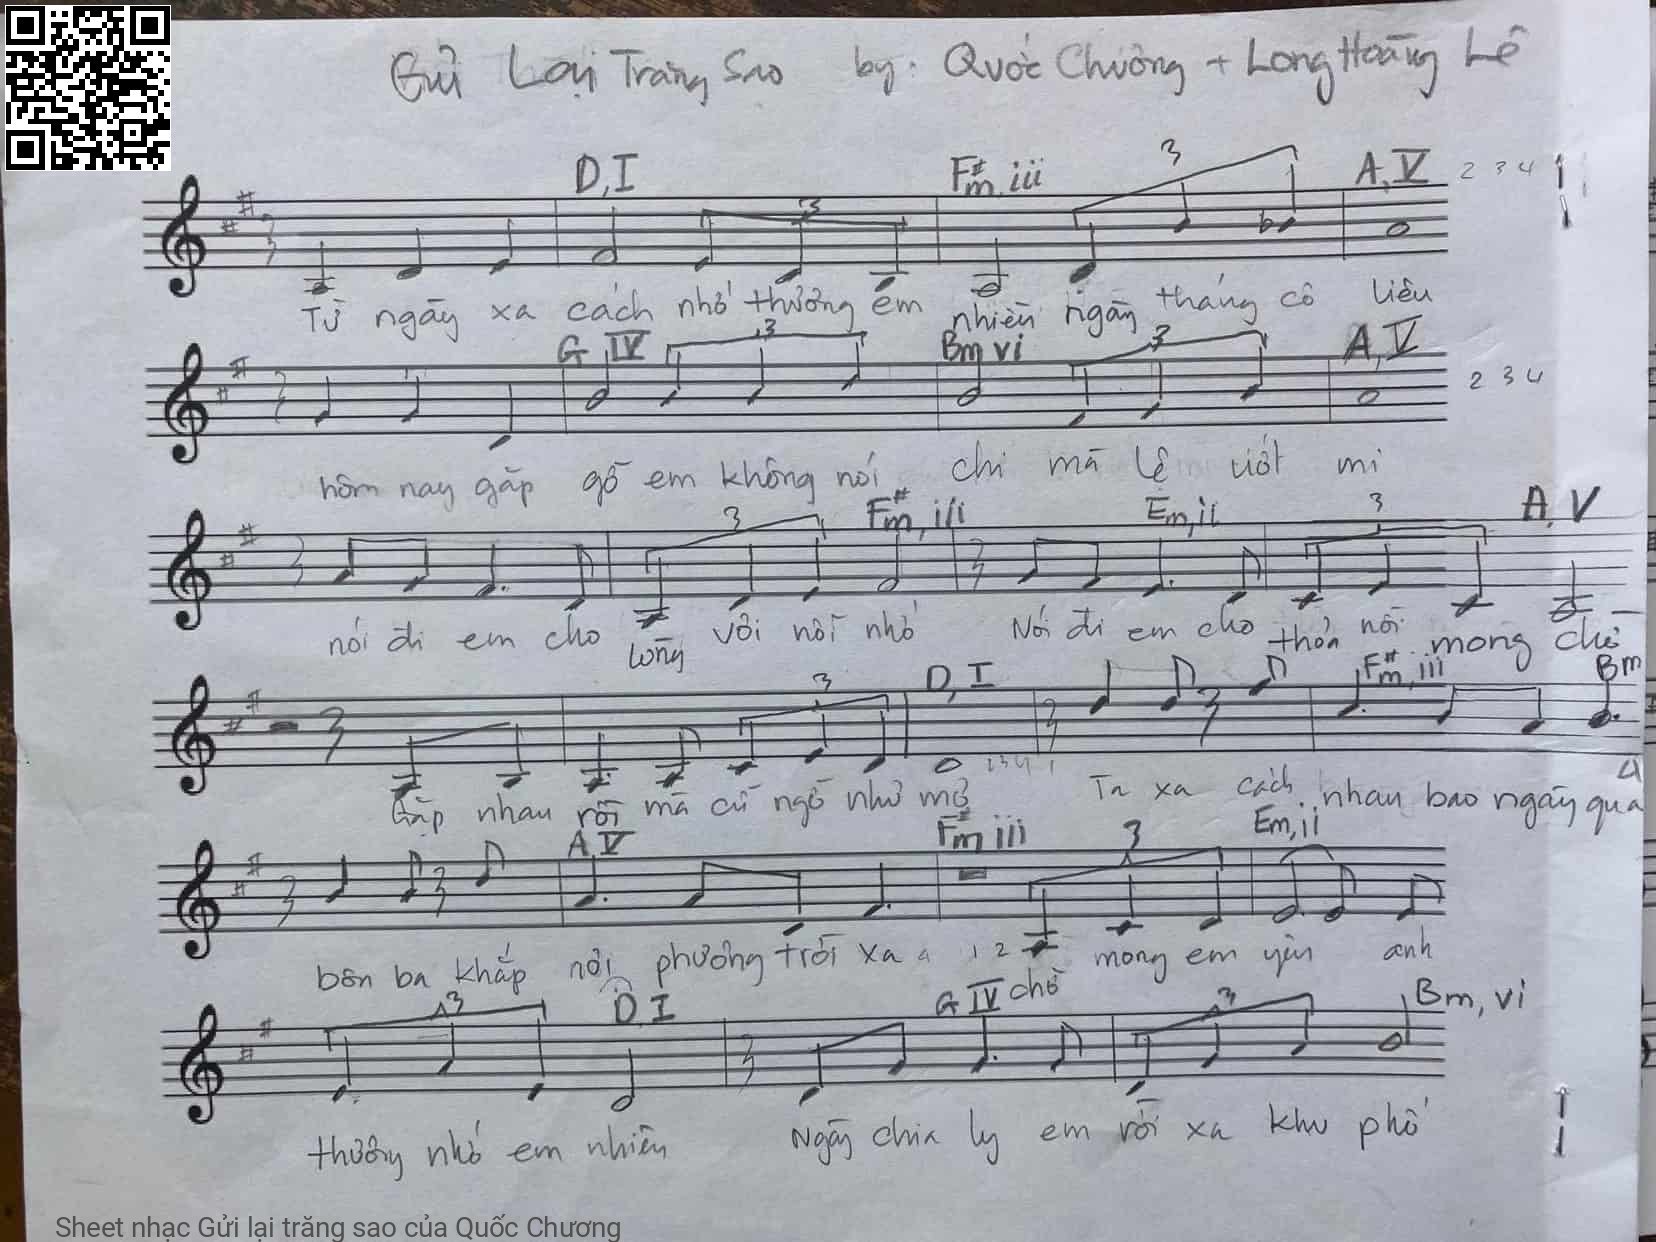 Gửi Lại Trăng Sao by: Quốc Chương + Long Hoàng Lê
D, I F#m, iii 3 A, V 2 3 4
3
Từ ngày xa cách nhớ thương em nhiều ngày tháng cô liêu
G IV 3 Bm vi 3 A, V
2 3 4
hôm nay gặp gỡ em không nói chi mà lệ ướt mi
3 F#m, iii Em, ii 3 A, V
nói đi em cho lòng vơi nỗi nhớ Nói đi em cho thỏa nỗi mong chờ
3 D, I F#m, iii Bm
Gặp nhau rồi mà cứ ngỡ như mơ Ta xa cách nhau bao ngày qua
A, V F#m iii 3 Em, ii
bôn ba khắp nơi phương trời xa a 1 2 chờ mong em yên anh
3 D I G IV 3 Bm, vi
thương nhớ em nhiều Ngày chia ly em rời xa khu phố
Sheet nhạc Gửi lại trăng sao của Quốc Chương